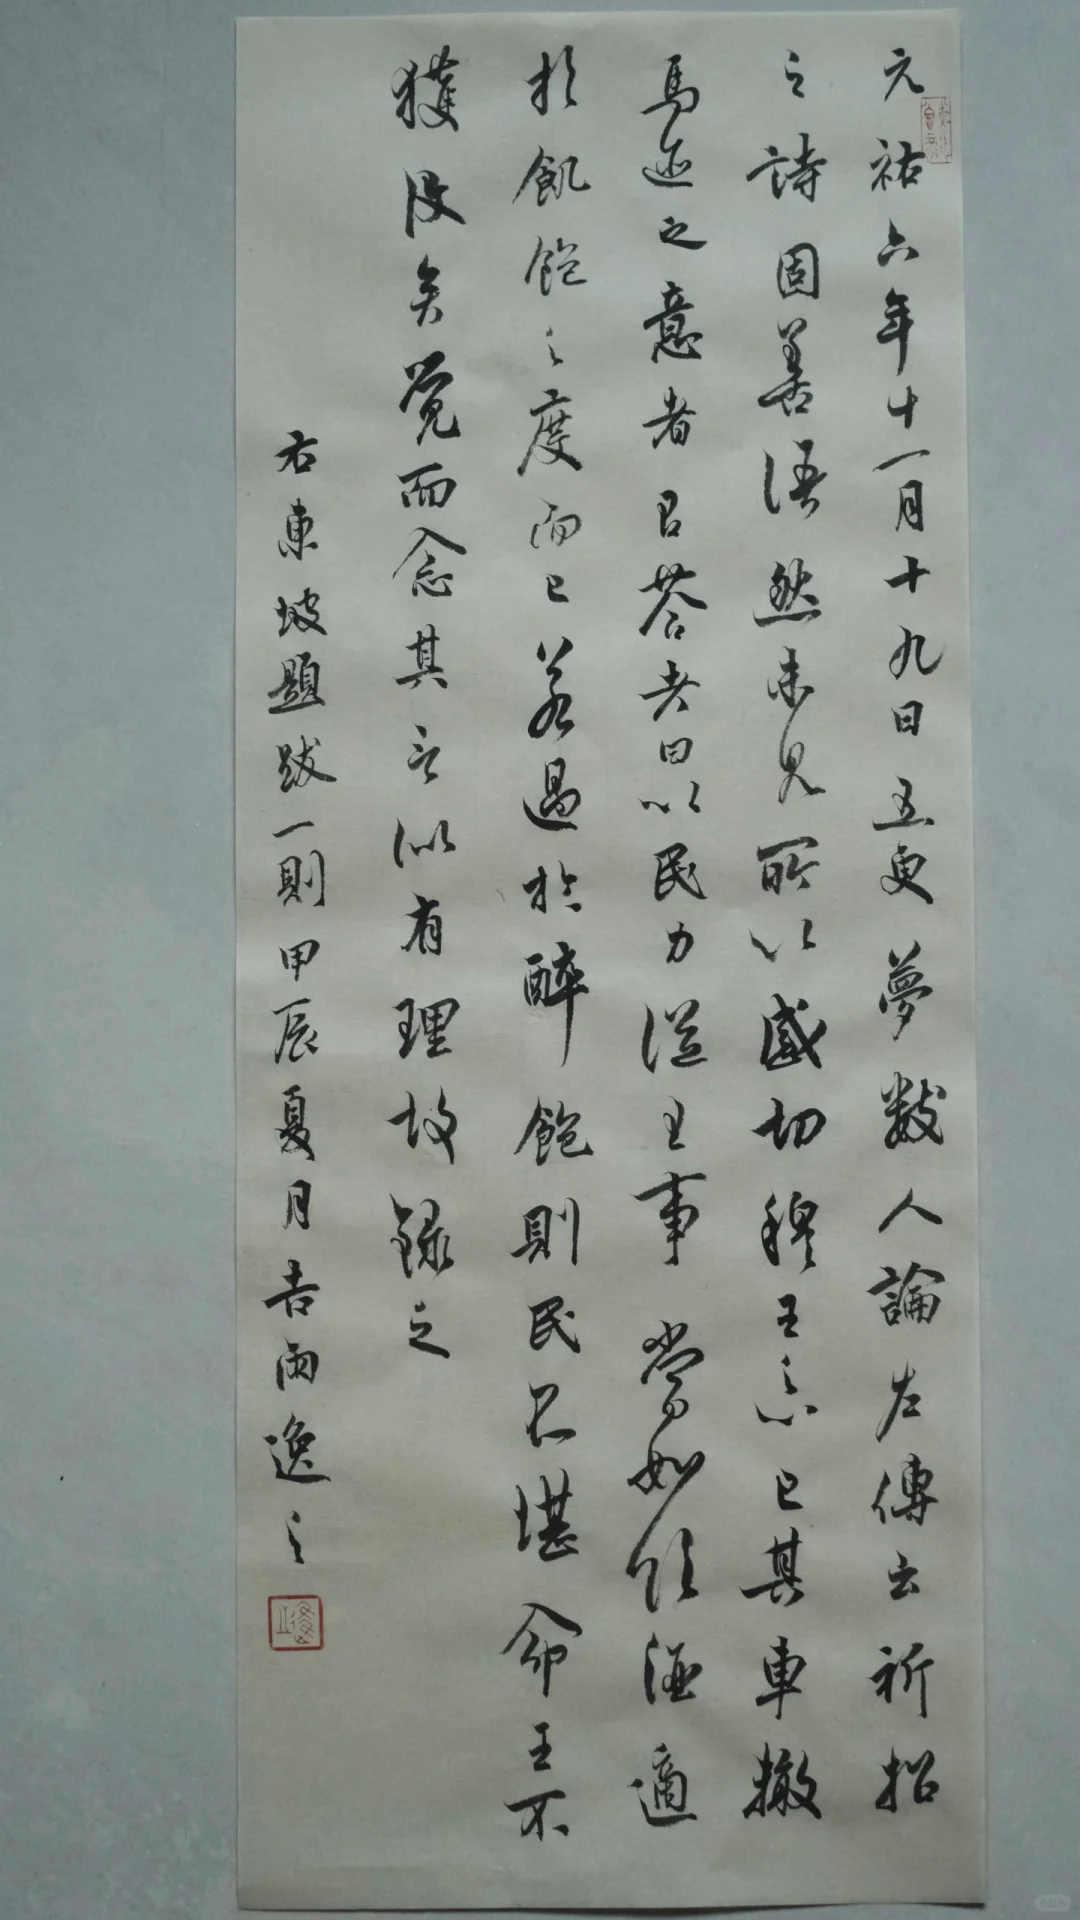 元祐六年十一月十九日五更夢數人論左傳云祈招
之詩固善語然未見所以感切穆王之心已其車撤
馬迹之意者吕荅者曰以民力從王事當如飲酒適
於飢飽之度而已若過於醉飽則民不堪命王不
獲没矣覺而念其言似有理故録之
右東坡題跋一則甲辰夏月吉雨逸之